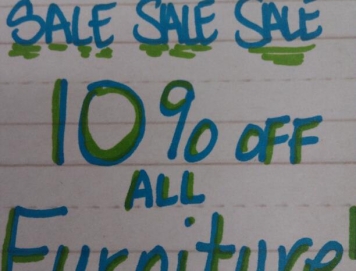 SALE SALE SALE
10% OFF
ALL
Furniture!